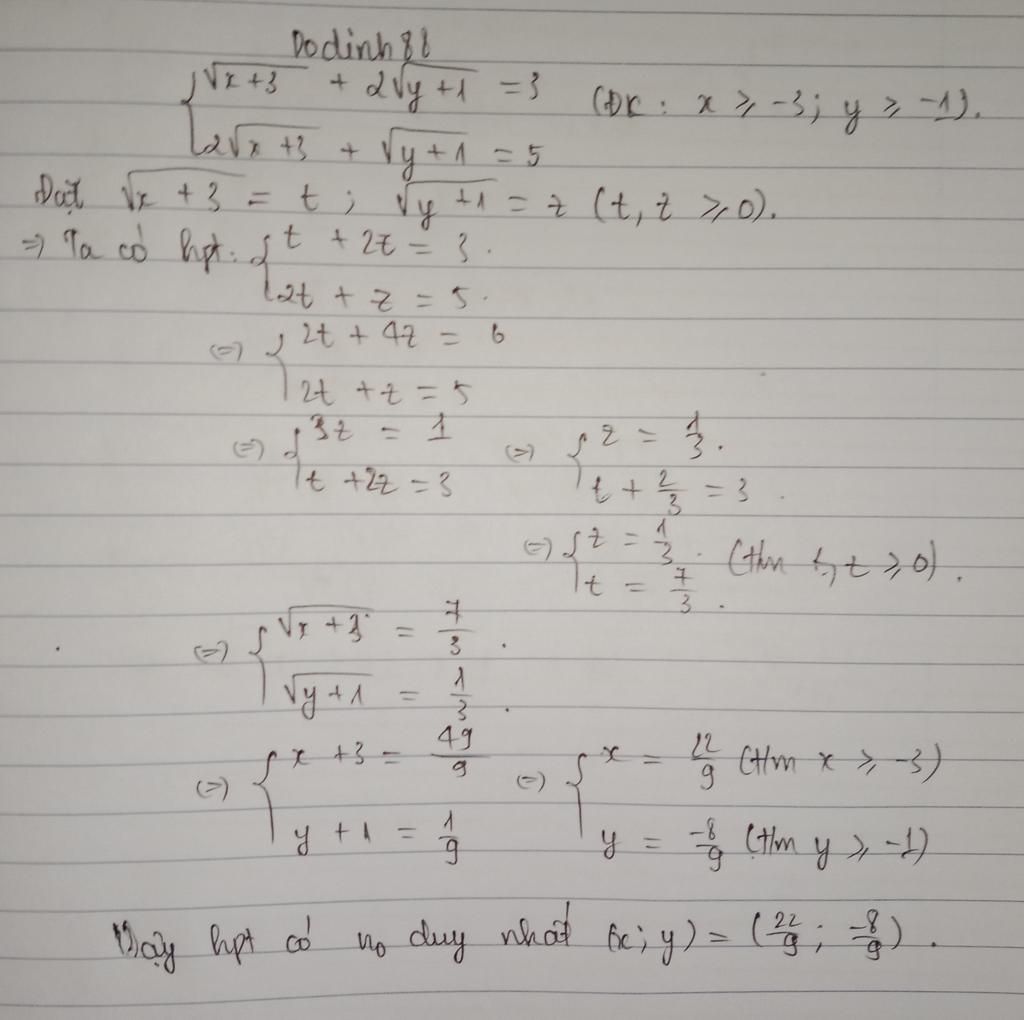 Dodinh88
{√(x+3) + 2√(y+1) = 3
(ĐK: x ≥ -3; y ≥ -1).
{2√(x+3) + √(y+1) = 5
Đặt √(x+3) = t; √(y+1) = z (t, z ≥ 0).
=> Ta có hpt: {t + 2z = 3.
{2t + z = 5.
(=) {2t + 4z = 6
{2t + z = 5
(=) {3z = 1 (=) {z = 1/3.
{t + 2z = 3 {t + 2/3 = 3.
(=) {z = 1/3. (thm t, z ≥ 0).
{t = 7/3.
(=) {√(x+3) = 7/3.
{√(y+1) = 1/3.
(=) {x + 3 = 49/9 (=) {x = 22/9 (t/m x ≥ -3)
{y + 1 = 1/9 {y = -8/9 (t/m y ≥ -1)
Vậy hpt có no duy nhất (x; y) = (22/9; -8/9).